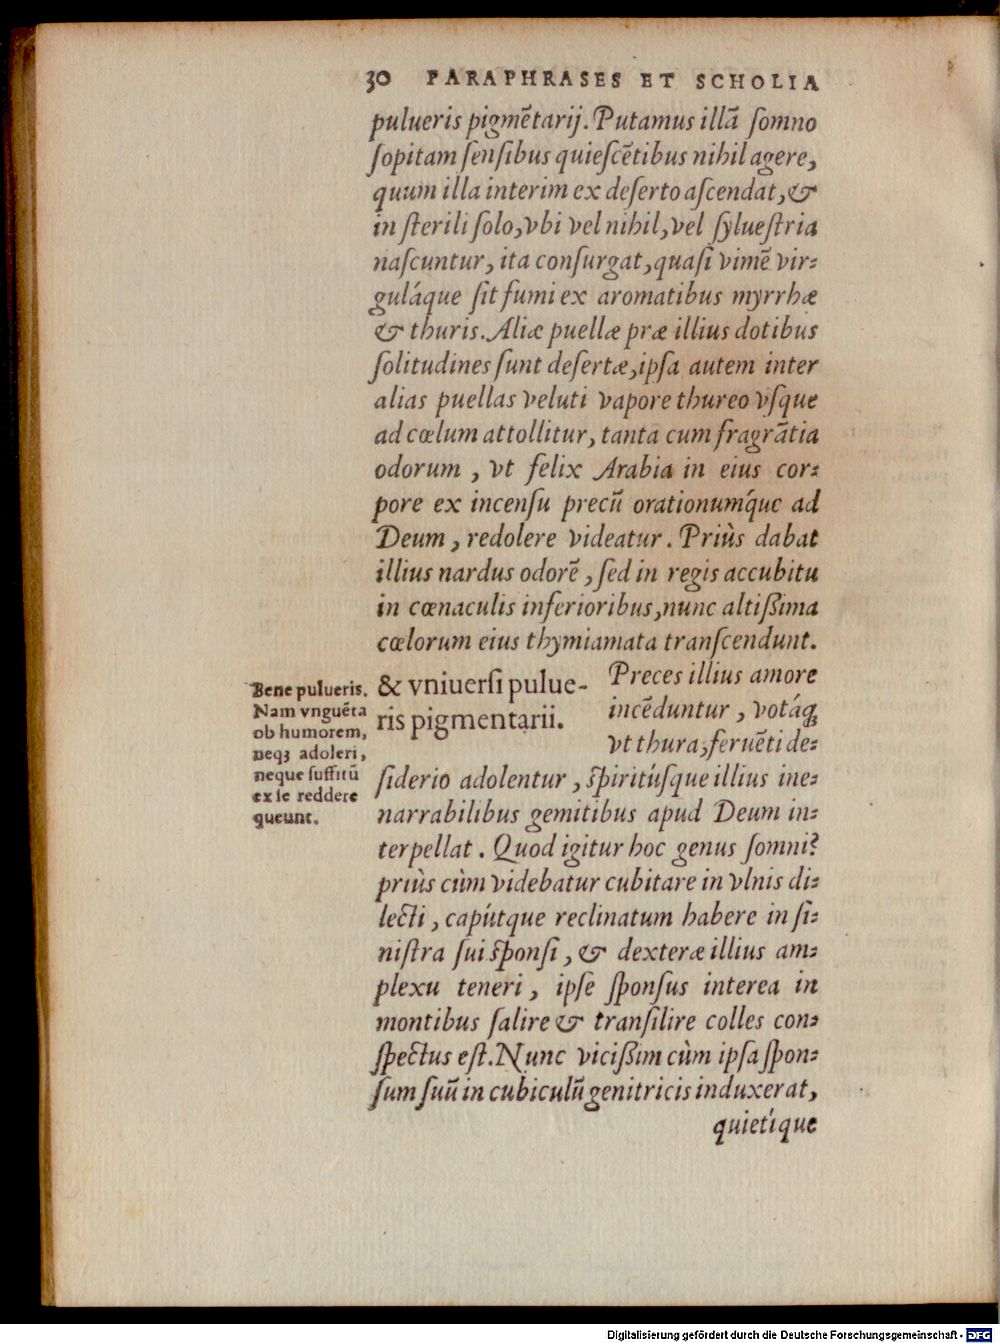 30 PARAPHRASES ET SCHOLIA
pulueris pigmẽtarij. Putamus illã ſomno
ſopitam ſenſibus quieſcẽtibus nihil agere,
quum illa interim ex deſerto aſcendat, &
in ſterili ſolo, vbi vel nihil, vel ſylueſtria
naſcuntur, ita conſurgat, quaſi vimẽ vir⸗
guláque ſit fumi ex aromatibus myrrhæ
& thuris. Aliæ puellæ præ illius dotibus
ſolitudines ſunt deſertæ, ipſa autem inter
alias puellas veluti vapore thureo vſque
ad cœlum attollitur, tanta cum fragrãtia
odorum, vt felix Arabia in eius cor⸗
pore ex incenſu precũ orationumq́ue ad
Deum, redolere videatur. Priùs dabat
illius nardus odorẽ, ſed in regis accubitu
in cœnaculis inferioribus, nunc altißima
cœlorum eius thymiamata tranſcendunt.
& vniuerſi pulue-
ris pigmentarii.
Preces illius amore
incẽduntur, votáq;
vt thura, feruẽti de⸗
ſiderio adolentur, ſpiritúſque illius ine⸗
narrabilibus gemitibus apud Deum in⸗
terpellat. Quod igitur hoc genus ſomni?
priùs cùm videbatur cubitare in vlnis di⸗
lecti, capútque reclinatum habere in ſi⸗
niſtra ſui ſponſi, & dexteræ illius am⸗
plexu teneri, ipſe ſponſus interea in
montibus ſalire & tranſilire colles con⸗
ſpectus eſt. Nunc viciſſim cùm ipſa ſpon⸗
ſum ſuũ in cubiculũ genitricis induxerat,
quietíque
Bene pulueris.
Nam vnguẽta
ob humorem,
neqꝫ adoleri,
neque ſuffitũ
ex ſe reddere
queunt.
Digitalisierung gefördert durch die Deutsche Forschungsgemeinschaft - DFG